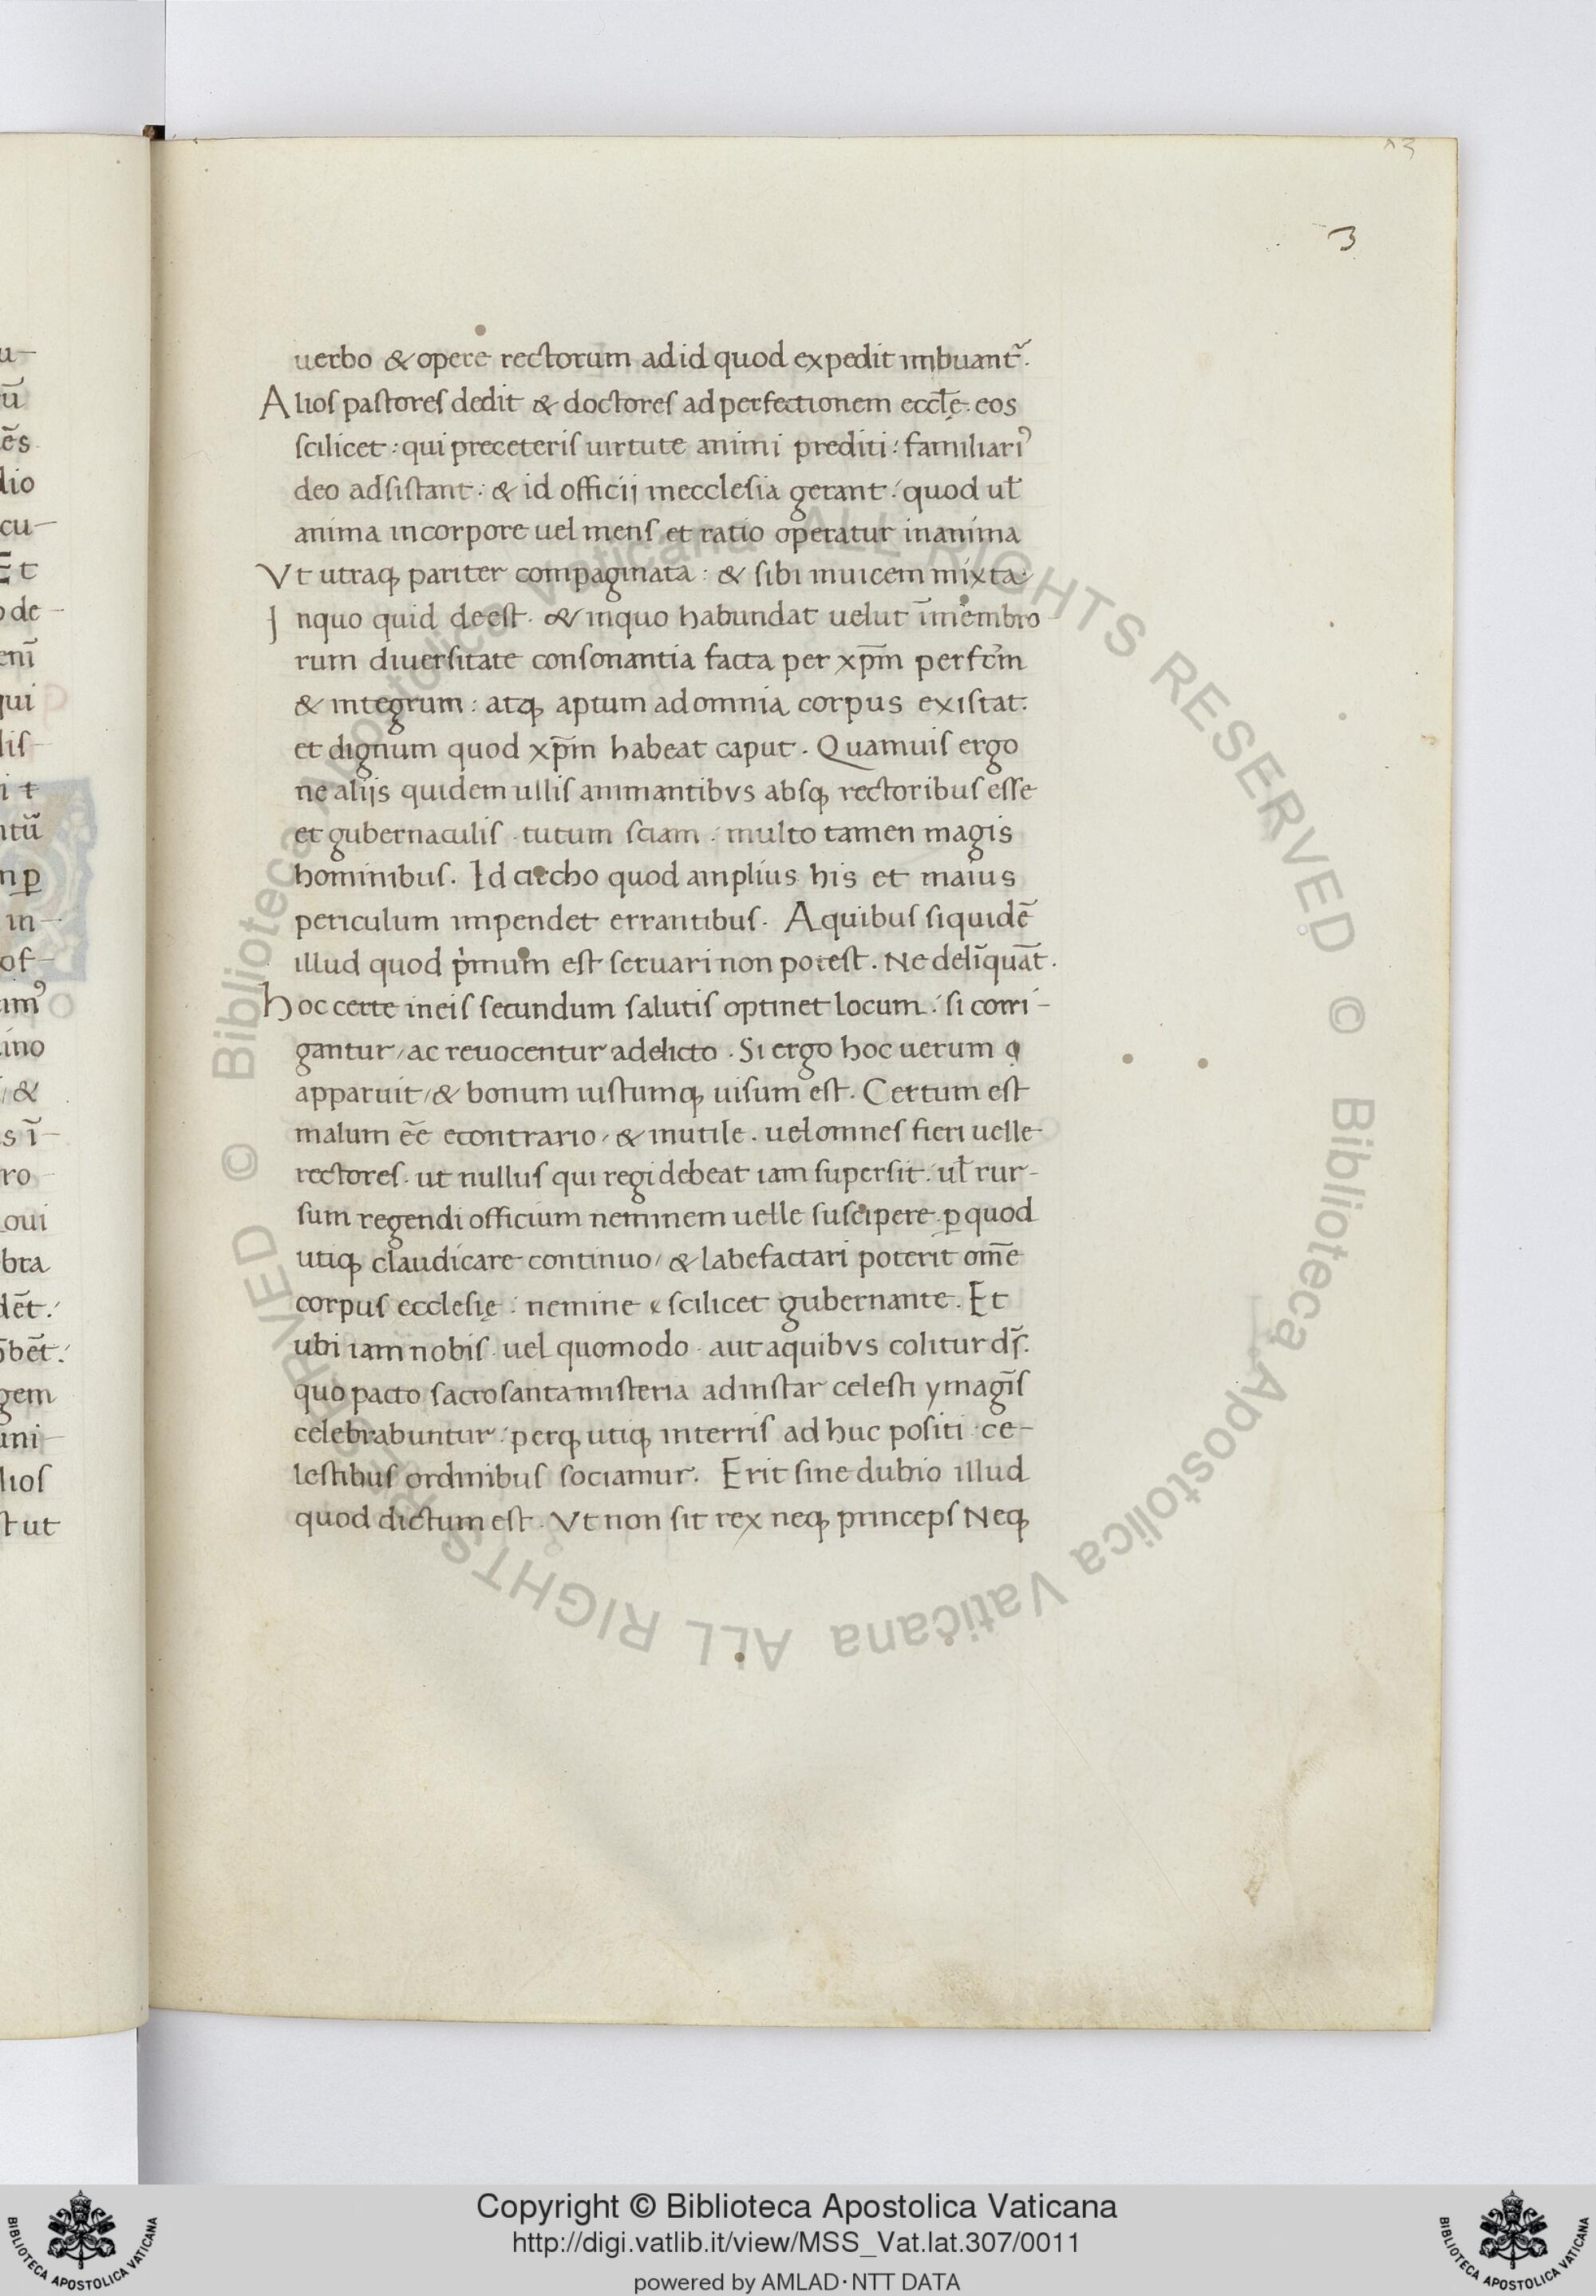 3
uerbo & opere rectorum ad id quod expedit imbuant᷑.
Alios pastores dedit & doctores ad perfectionem eccl̄ę. eos
scilicet : qui preceteris uirtute animi prediti : familiari⁹
deo adsistant : & id officij inecclesia gerant : quod ul̄
anima incorpore uel mens et ratio operatur inanima
Vt utraq; pariter compaginata : & sibi inuicem mixta :
Inquo quid deest . & inquo habundat uelut īmembro
rum diuersitate consonantia facta per xp̄m perfc̄m
& integrum : atq; aptum ad omnia corpus existat :
et dignum quod xp̄m habeat caput . Quamuis ergo
ne alijs quidem ullis animantibvs absq; rectoribus esse
et gubernaculis . tutum sciam : multo tamen magis
hominibus . Id circho quod amplius his et maius
periculum impendet errantibus . A quibus siquidē
illud quod p̍mum est seruari non potest . Ne delīquāt .
Hoc certe in eis secundum salutis optinet locum : si corri-
gantur / ac reuocentur adelicto . Si ergo hoc uerum q
apparuit / & bonum iustumq; uisum est . Certum est
malum ēē econtrario / & inutile . uel omnes fieri uelle
rectores . ut nullus qui regi debeat iam supersit . ul̄ rur-
sum regendi officium neminem uelle suscipere . ꝑ quod
utiq; claudicare continuo / & labefactari poterit om̄e
corpus ecclesię : nemine scilicet gubernante . Et
ubi iam nobis . uel quomodo . aut aquibvs colitur d̄s .
quo pacto sacrosanta misteria adinstar celesti ymagīs
celebrabuntur : perq; utiq; interris ad huc positi . ce-
lestibus ordinibus sociamur . Erit sine dubio illud
quod dictum est . Vt non sit rex neq; princeps Neq;
u-
ū
ēs
dio
cu-
Et
ode-
enī
qui
lis-
it
ntū
mꝑ
in-
of-
im⁹
ino
/ &
s ī-
ro-
oui
bra
dēt :
bēt :
gem
uni-
lios
st ut
© Biblioteca Apostolica Vaticana ALL RIGHTS RESERVED © Biblioteca Apostolica Vaticana ALL RIGHTS RESERVED
BIBLIOTECA APOSTOLICA VATICANA
Copyright © Biblioteca Apostolica Vaticana
http://digi.vatlib.it/view/MSS_Vat.lat.307/0011
powered by AMLAD·NTT DATA
BIBLIOTECA APOSTOLICA VATICANA